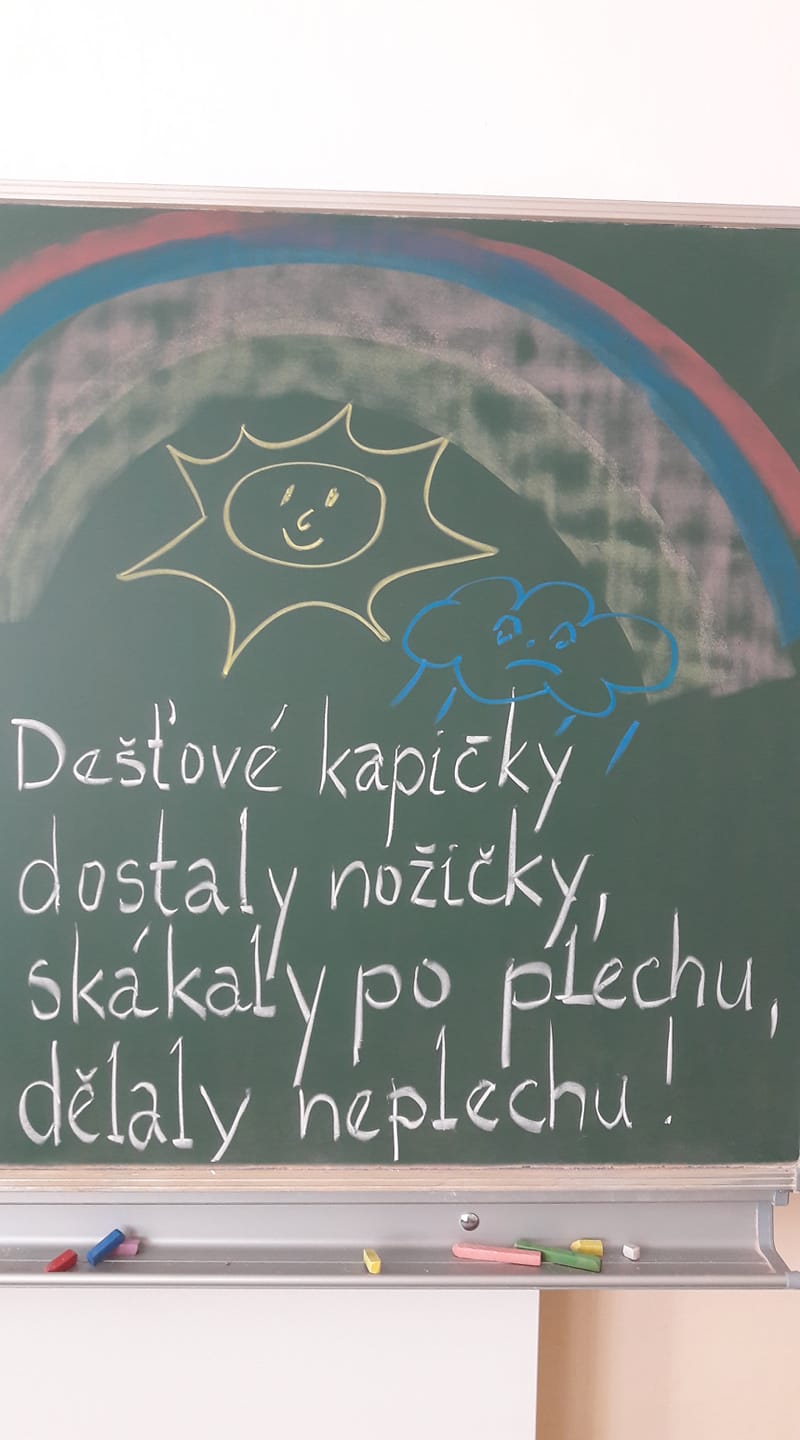 Dešťové kapičky
dostaly nožičky,
skákaly po plechu,
dělaly neplechu!